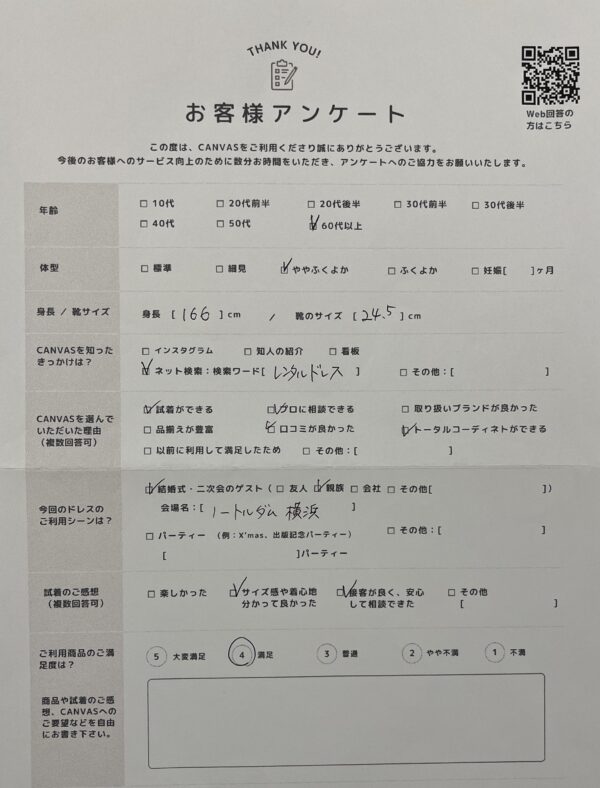 THANK YOU!
お客様アンケート
Web回答の
方はこちら
この度は、CANVASをご利用くださり誠にありがとうございます。
今後のお客様へのサービス向上のために数分お時間をいただき、アンケートへのご協力をお願いいたします。
年齢
□ 10代 □ 20代前半 □ 20代後半 □ 30代前半 □ 30代後半
□ 40代 □ 50代 ☑ 60代以上
体型
□ 標準 □ 細見 ☑ ややふくよか □ ふくよか □ 妊娠[ ]ヶ月
身長 / 靴サイズ
身長 [ 166 ] cm / 靴のサイズ [ 24.5 ] cm
CANVASを知った
きっかけは?
□ インスタグラム □ 知人の紹介 □ 看板
☑ ネット検索:検索ワード[ レンタルドレス ] □ その他:[ ]
CANVASを選んで
いただいた理由
(複数回答可)
☑ 試着ができる ☑ プロに相談できる □ 取り扱いブランドが良かった
□ 品揃えが豊富 ☑ 口コミが良かった ☑ トータルコーディネートができる
□ 以前に利用して満足したため □ その他:[ ]
今回のドレスの
ご利用シーンは?
☑ 結婚式・二次会のゲスト ( □ 友人 ☑ 親族 □ 会社 □ その他[ ])
会場名:[ ノートルダム 横浜 ]
□ パーティー (例:X'mas、出版記念パーティー) □ その他:[ ]
[ ]パーティー
試着のご感想
(複数回答可)
□ 楽しかった ☑ サイズ感や着心地 ☑ 接客が良く、安心 □ その他
分かって良かった して相談できた [ ]
ご利用商品のご満
足度は?
5 大変満足 4 満足 3 普通 2 やや不満 1 不満
商品や試着のご感
想、CANVASへの
ご要望などを自由
にお書き下さい。